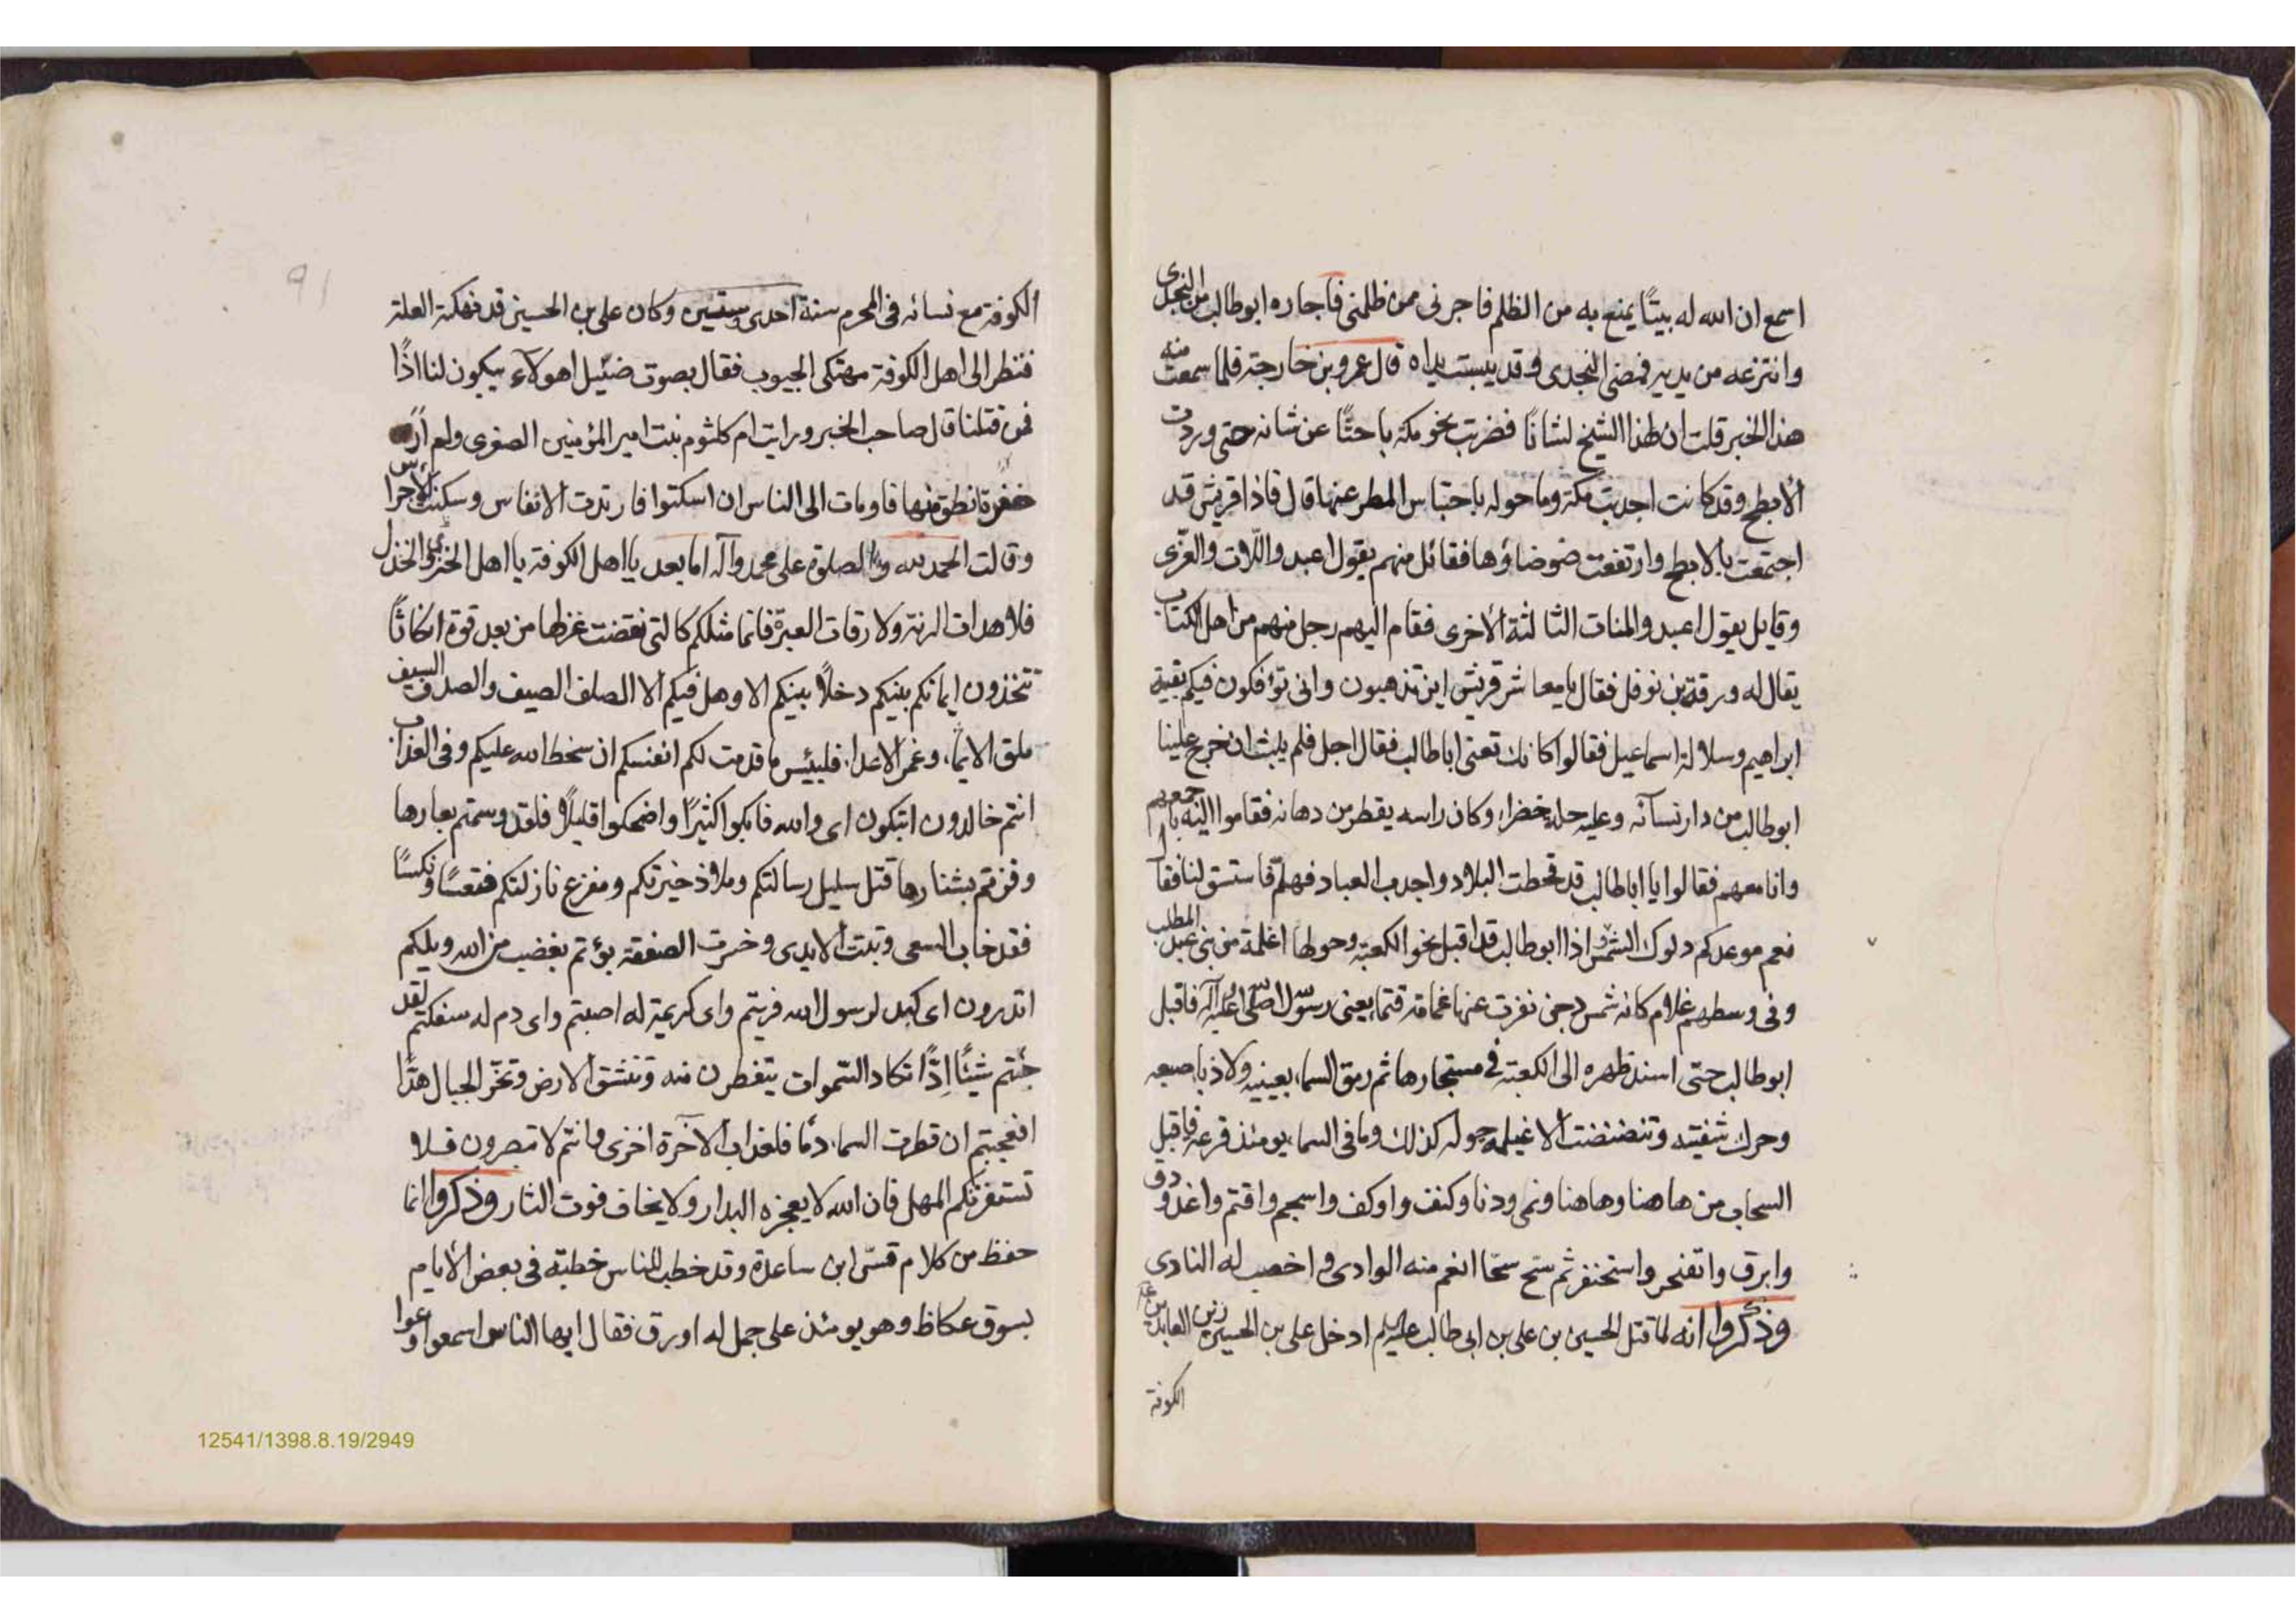 اسمع ان الله له بيتًا يمنع به من الظلم فاجرنى ممن ظلمنى فاجاره ابوطالب من النجدى
وانتزعه من يديه فمضى النجدى وقد يبست يداه قال عمرو بن خارجة فلما سمعت منه
هذا الخبر قلت ان لهذا الشيخ لشانًا فضربت نحو مكة باحثًا عن شانه حتى وردت
الأبطح وقد كانت اجدبت مكة وما حوله باحتباس المطر عنها قال فاذا قريش قد
اجتمعت بالابطح وارتفعت ضوضاؤها فقائل منهم يقول اعبدوا اللات والعزّى
وقايل يقول اعبدوا المنات الثالثة الأخرى فقام اليهم رجل منهم من اهل الكتاب
يقال له ورقة بن نوفل فقال يا معاشر قريش اين تذهبون وانى تؤفكون فيكم بقية
ابراهيم وسلالة اسماعيل فقالوا كانك تعنى اباطالب فقال اجل فلم يلبث ان خرج علينا
ابوطالب من دار نسآئه وعليه حلة خضراء وكان راسه يقطر من دهانه فقاموا اليه باجمعهم
وانا معهم فقالوا يا اباطالب قد قحطت البلاد واجدب العباد فهلمّ فاستسق لنا فقال
نعم موعدكم دلوك الشمس اذا ابوطالب قد اقبل نحو الكعبة وحولها اغلمة من بنى عبد المطلب
وفى وسطهم غلام كانه شمس دجى نفرت عنها غمامة قتماء يعنى رسول الله صلى الله عليه وآله فاقبل
ابوطالب حتى اسند ظهره الى الكعبة فى مستجارها ثم رمق السماء بعينيه ولاذ باصبعه
وحرك شفتيه وتنضنضت الاغيلمة حوله كذلك وما فى السماء يومئذ قزعة فاقبل
السحاب من هاهنا وهاهنا ونمى ودنا وكنف واوكف واسجم واقتم واغدودق
وابرق واتفنجر واسحنفر ثم سح سحّا انغم منه الوادى واخصب له النادى
وذكروا انه لما قتل الحسين بن على بن ابى طالب عليه السلم ادخل على بن الحسين زين العابدين
الكوفة
91
الكوفة مع نسائه فى المحرم سنة احدى وستين وكان على بن الحسين قد نهكته العلة
فنظر الى اهل الكوفة مهتكى الجيوب فقال بصوت ضئيل اهولاء يبكون لنا اذًا
فمن قتلنا قال صاحب الخبر ورايت ام كلثوم بنت امير المؤمنين الصغرى ولم ار
خفرة انطق منها فاومات الى الناس ان اسكتوا فارتدت الانفاس وسكنت الأجراس
وقالت الحمد لله والصلوة على محمد وآله اما بعد يا اهل الكوفة يا اهل الختر والخذل
فلا هدات الرنة ولا رقات العبرة فانما مثلكم كالتى نقضت غزلها من بعد قوة انكاثًا
تتخذون ايمانكم بينكم دخلًا بينكم الا وهل فيكم الا الصلف والصدف السيف
ملق الاماء وغمز الاعداء فلبئس ما قدمت لكم انفسكم ان سخط الله عليكم وفى العذاب
انتم خالدون اتبكون اى والله فابكوا كثيرًا واضحكوا قليلًا فلقد وسمتم بعارها
وفزتم بشنارها قتل سليل رسالتكم وملاذ خيرتكم ومفزع نازلتكم فتعسًا ونكسًا
فقد خاب السعى وتبت الايدى وخسرت الصفقة بؤتم بغضب من الله ويلكم
اتدرون اى كبد لرسول الله فريتم واى كريمة له اصبتم واى دم له سفكتم لقد
جئتم شيئًا إدًّا تكاد السموات يتفطرن منه وتنشق الارض وتخرّ الجبال هدًّا
افعجبتم ان قطرت السماء دمًا فلعذاب الآخرة اخزى وانتم لا تبصرون فلا
تستفزنكم المهل فان الله لا يعجزه البدار ولا يخاف فوت الثار وذكروا انما
حفظ من كلام قسّ ابن ساعدة وقد خطب للناس خطبة فى بعض الأيام
بسوق عكاظ وهو يومئذ على جمل له اورق فقال ايها الناس اسمعوا وعوا
12541/1398.8.19/2949